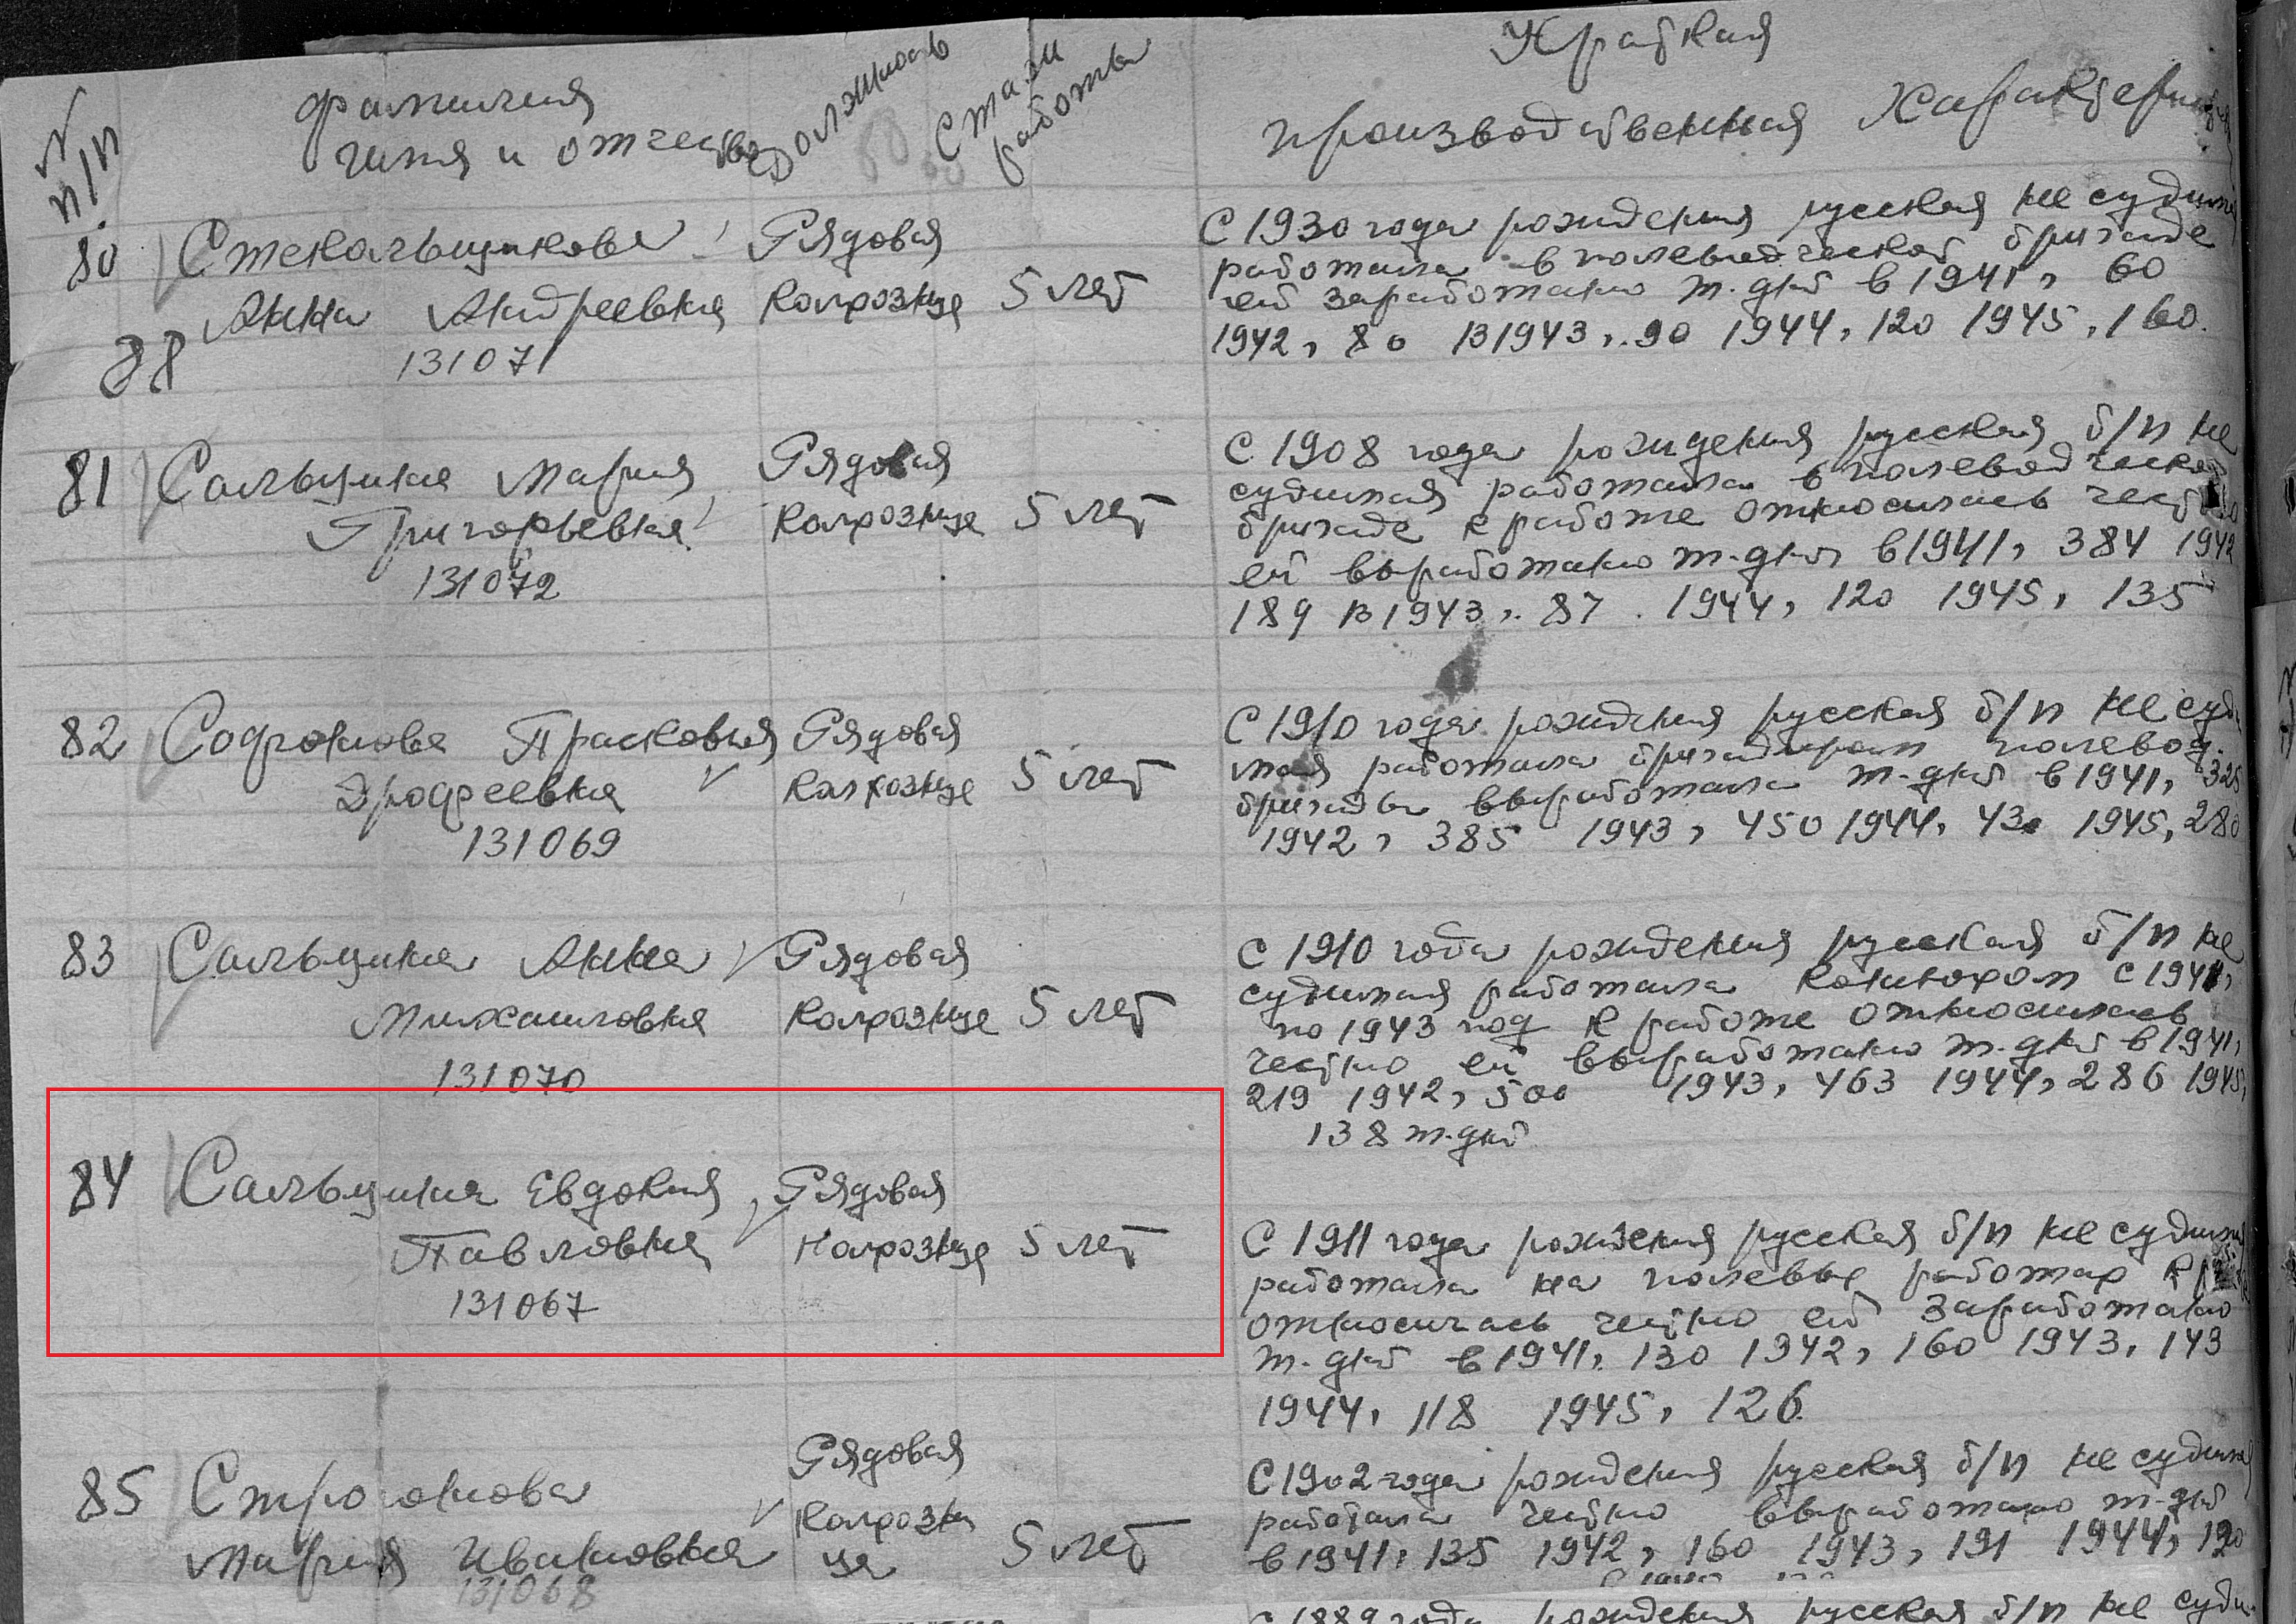 № п/п
фамилия
имя и отчество
Должность
Стаж работы
Краткая
производственная
80 Стекольщикова Рядовая
Анна Андреевна Колхозница 5 лет
131071
88
С 1930 года рождения русская не судима
работала в полеводческой бригаде
ей заработано т.дней в 1941, 60
1942, 80 в 1943, 90 1944, 120 1945, 160.
81 Сальцина Мария Рядовая
Григорьевна Колхознице 5 лет
131072
С 1908 года рождения русская б/п не
судимая работала в полеводческой
бригаде к работе относилась честно
ей выработано т.дней в 1941, 384 1942
189 в 1943, 87 1944, 120 1945, 135
82 Софронова Прасковья Рядовая
Колхознице 5 лет
131069
С 1910 года рождения русская б/п не суди
мая работала бригадиром полевод.
бригады выработала т.дней в 1941, 325
1942, 385 1943, 450 1944, 430 1945, 280
83 Сальцина Анна Рядовая
Михайловна Колхознице 5 лет
131070
С 1910 года рождения русская б/п не
судимая работала конюхом с 1941,
по 1943 год к работе относилась
честно ей выработано т.дней в 1941,
219 1942, 500 1943, 463 1944, 286 1945,
138 т.дней
84 Сальцина Евдокия Рядовая
Павловна Колхознице 5 лет
131067
С 1911 года рождения русская б/п не судима
работала на полевые работах к
относилась честно ей заработано
т.дней в 1941, 130 1942, 160 1943, 143
1944, 118 1945, 126.
85 Строгонова Рядовая
Мария Ивановна Колхозни
це 5 лет
131068
С 1902 года рождения русская б/п не судима
работала честно выработано т.дней
в 1941, 135 1942, 160 1943, 191 1944, 190
С 1889 года рождения русская б/п не суди